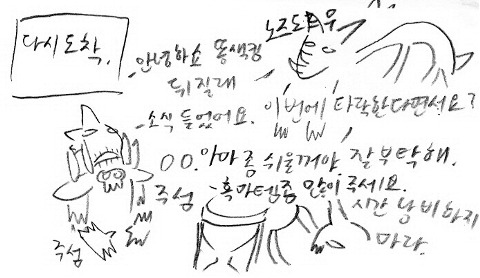 다시 도착.
안녕하쇼 똥색킹
뒤질래
노즈도르무
소식 들었어요.
이번에 타락한다면서요?
ㅇㅇ. 아마 좀 쉬울꺼야 잘 부탁해.
주섬
흑마템좀 많이 주세요.
시간 낭비하지
마라.
주섬